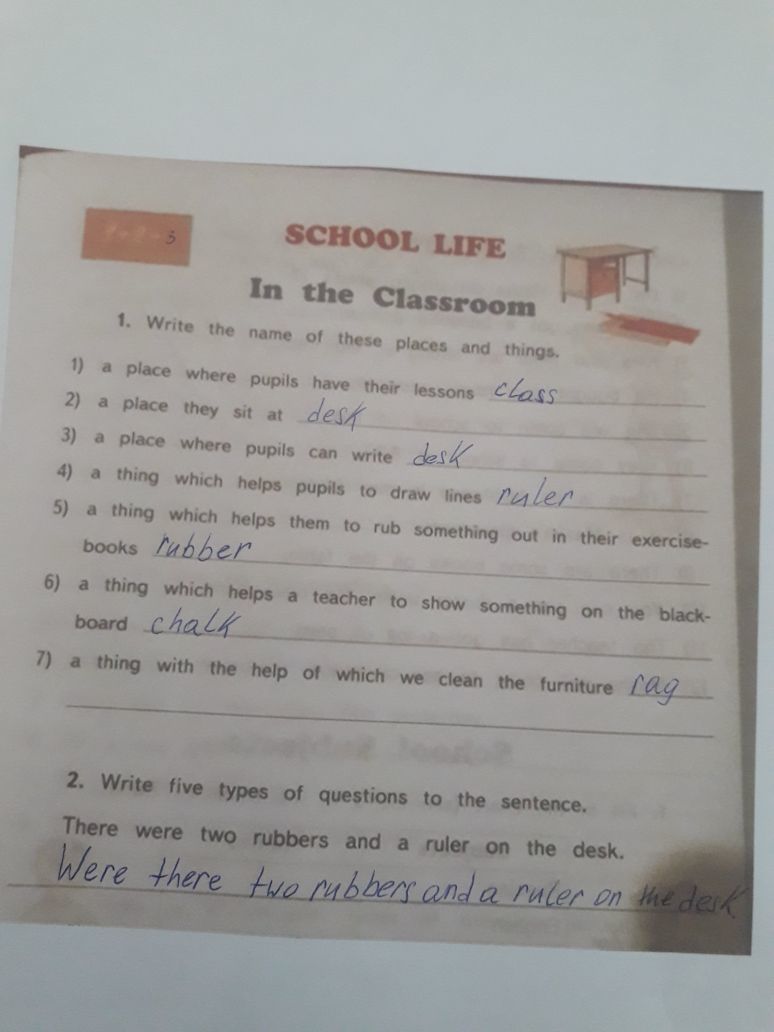 3
SCHOOL LIFE
In the Classroom
1. Write the name of these places and things.
1) a place where pupils have their lessons class
2) a place they sit at desk
3) a place where pupils can write desk
4) a thing which helps pupils to draw lines ruler
5) a thing which helps them to rub something out in their exercise-
books rubber
6) a thing which helps a teacher to show something on the black-
board chalk
7) a thing with the help of which we clean the furniture rag
2. Write five types of questions to the sentence.
There were two rubbers and a ruler on the desk.
Were there two rubbers and a ruler on the desk